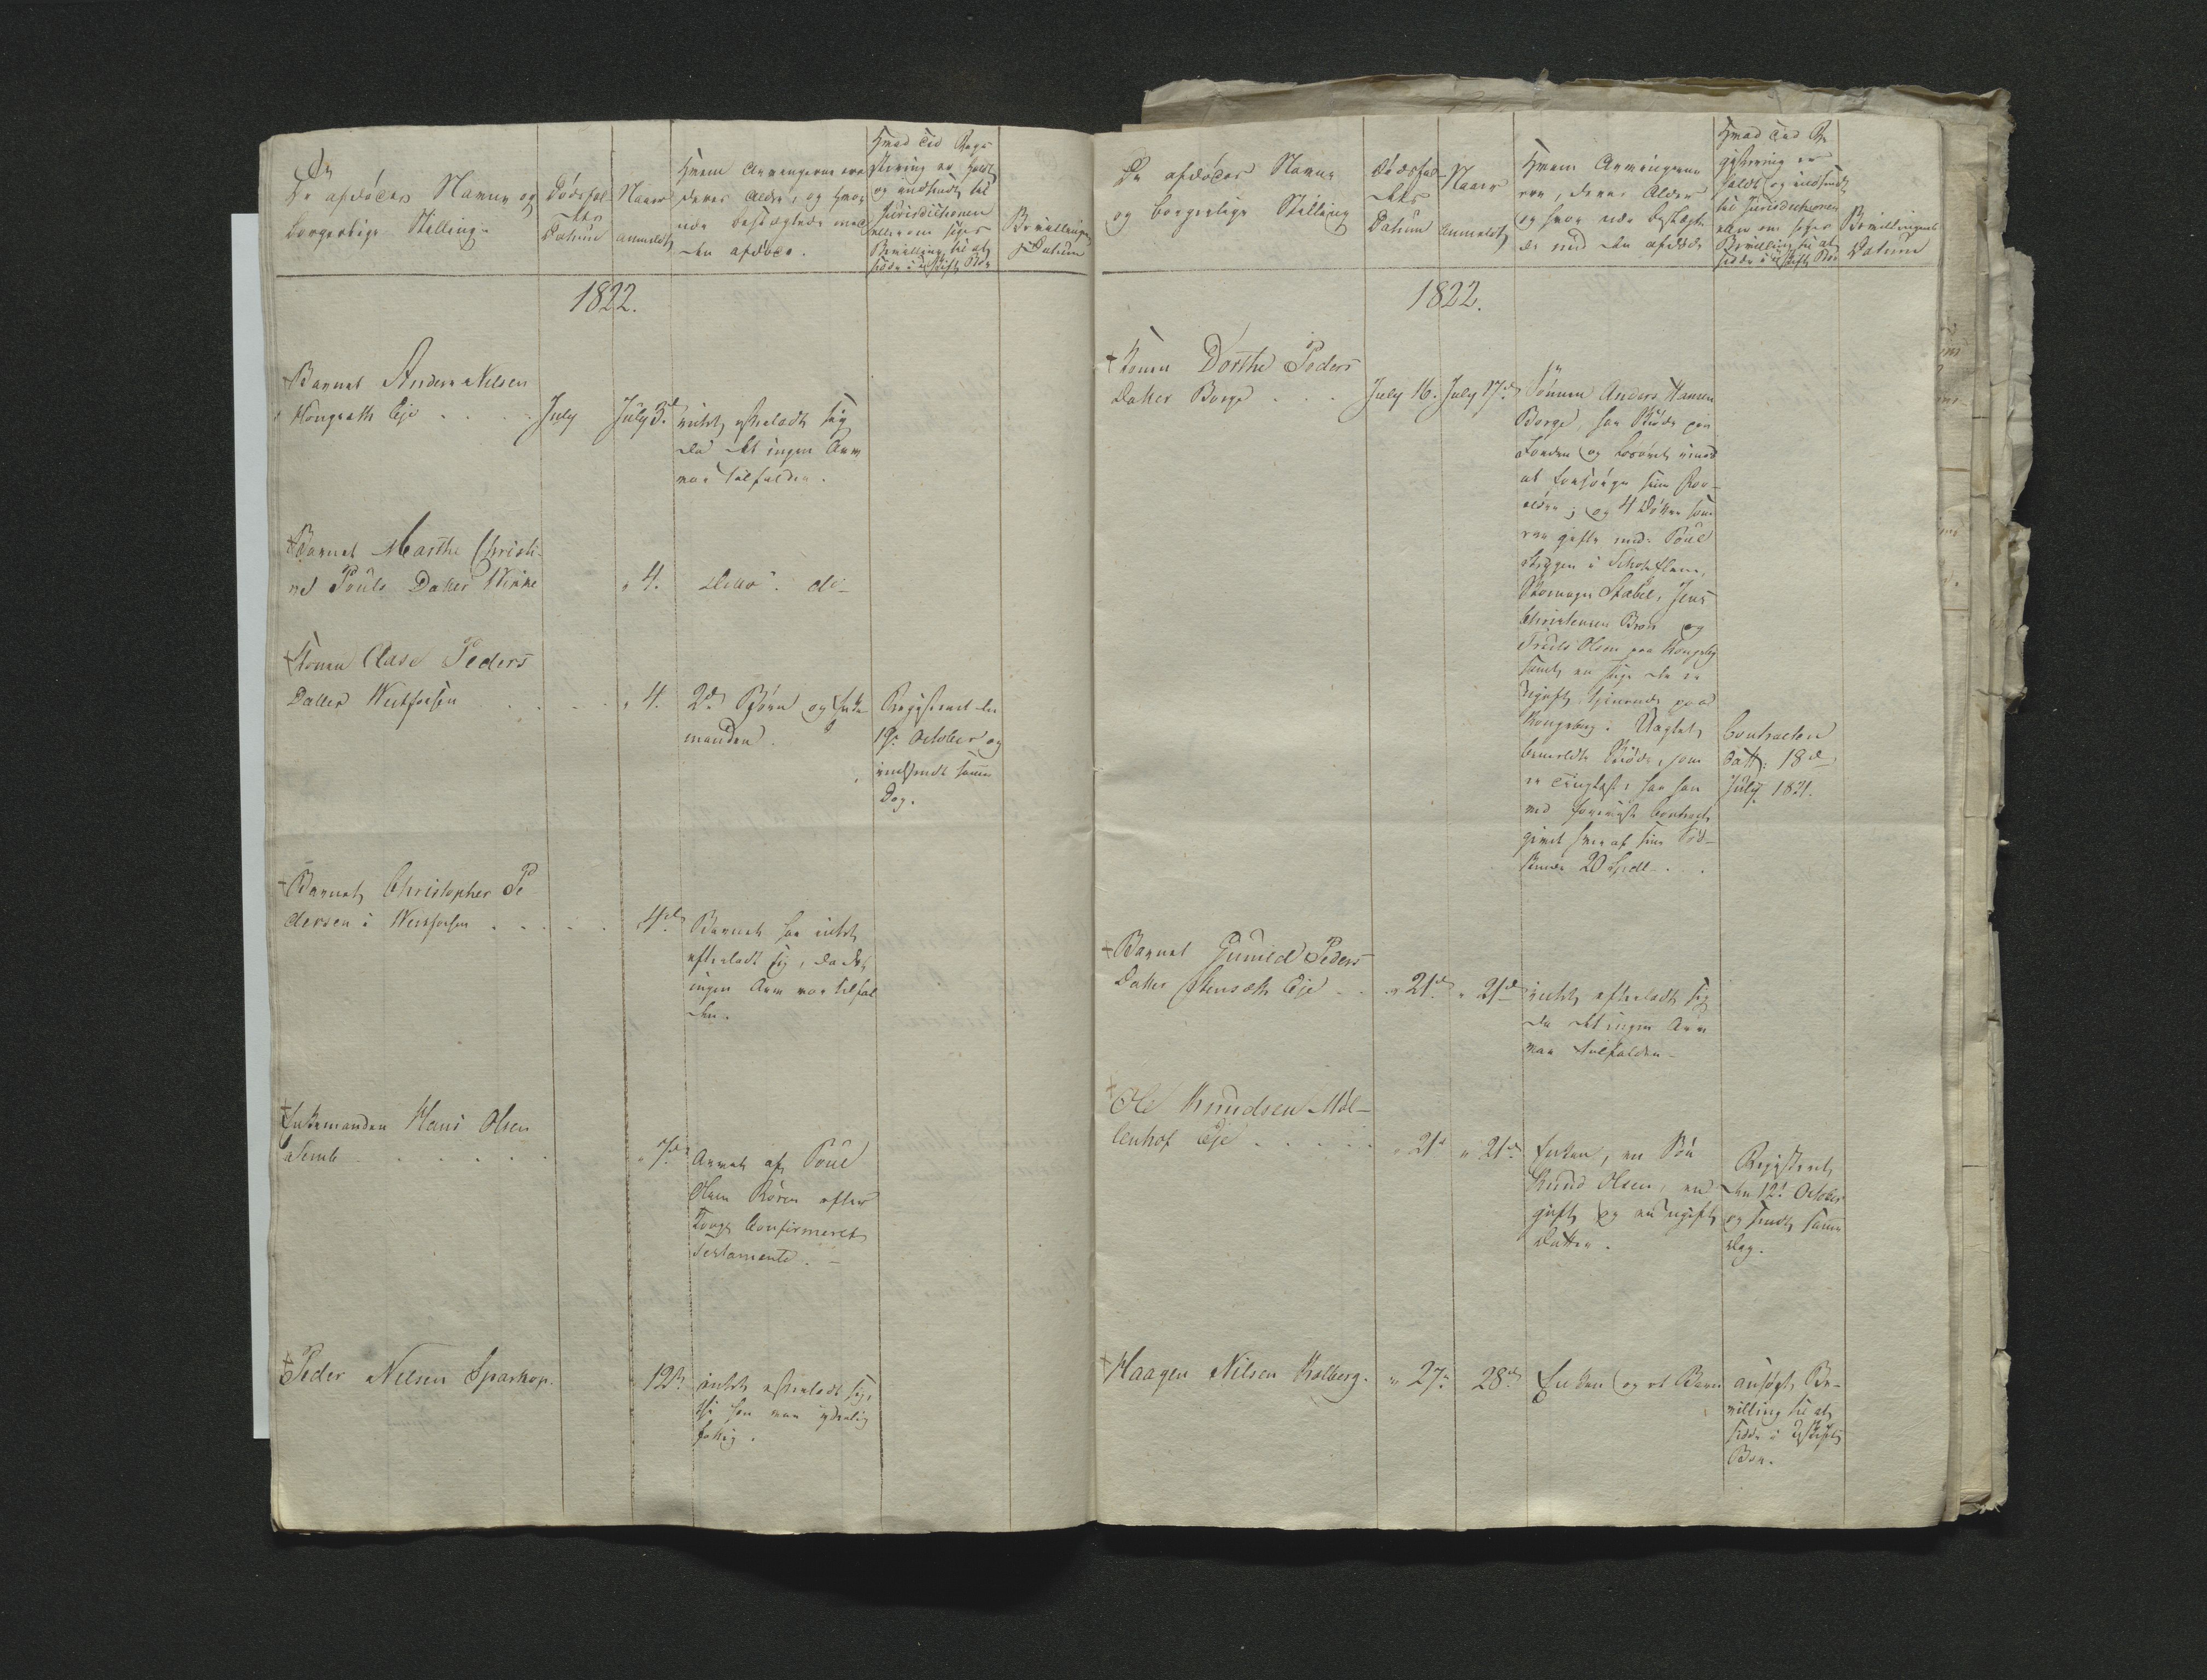 De afdødes Navne og
borgerlige Stilling.
Dødsfal-
dets
Datum
Naar
anmeldt
Hvem Arvingerne ere
deres Alder, og hvor
nær beslægtede med
den afdøde.
Hvad Tid Regi-
strering er holdt
og indsendt til
Jurisdictionen
eller om søges
Bevilling til at
sidde i uskiftet Boe
Bevillingens
Datum
1822.
Barnet Anders Nilsen
Kongrath Eje
July
July 3d
intet efterladt sig
da det ingen Arv
var tilfalden.
Barnet Marthe Christi-
ne Pouls Datter
" 4.
ditto. do
Konen Aase Peders
Datter
" 4.
2de Børn og Enke
manden.
Registreret den
19de October og
indsendt samme
Dag.
Barnet Christopher Pe-
dersen i
4de
Barnet har intet
efterladt sig, da det
ingen Arv var tilfal
den.
Enkemanden Hans Olsen
Semb
" 7de
Arvet af Poul
Olsen efter
Confirmeret
Testamente.
Peder Nilsen Sparkop.
12te
intet efterladt sig,
da han var yderlig
fattig.
De afdødes Navne
og borgerlige Stilling
Dødsfal-
dets
Datum
Naar
anmeldt
Hvem Arvingerne
ere, deres Alder
og hvor nær beslægte-
de med den afdøde
Hvad Tid Re-
gistrering er
holdt og indsendt
til Jurisdictionen
eller om søges
Bevilling til at
sidde i uskiftet Boe
Bevillingens
Datum
1822.
Konen Dorthe Peders
Datter Borge
July 16.
July 17de
Sønnen Anders Hansen
Borge, har Skiøde paa
Jorden og Løsøret imod
at forsørge sine For-
ældre; og 4 Døttre som
ere gifte med: Poul
i
Jens
Christensen Broe og
Olsen paa Kongsberg
samt en Pige der er
ugift tienende paa
Kongsberg. Uagtet
bemeldte Skiøde, som
er tinglæst, har han
ved foreviist Contract
givet hver af sine Sød-
skende 20 Spdlr.
Contracten
datt: 18de
July 1821.
Barnet Gunild Peders
Datter Stensæth Eje
" 21de
" 21de
intet efterladt sig
da det ingen Arv
var tilfalden.
Ole Knudsen Møl-
lenhof Eje
" 21de
" 21de
Enken, en Søn
Knud Olsen, en
gift og en ugift
Datter.
Registreret
den 12te October
og sendt samme
Dag.
Haagen Nilsen Kolberg.
" 27de
28de
Enken og et Barn
ansøgt Be-
villing til at
sidde i uskiftet
Boe.